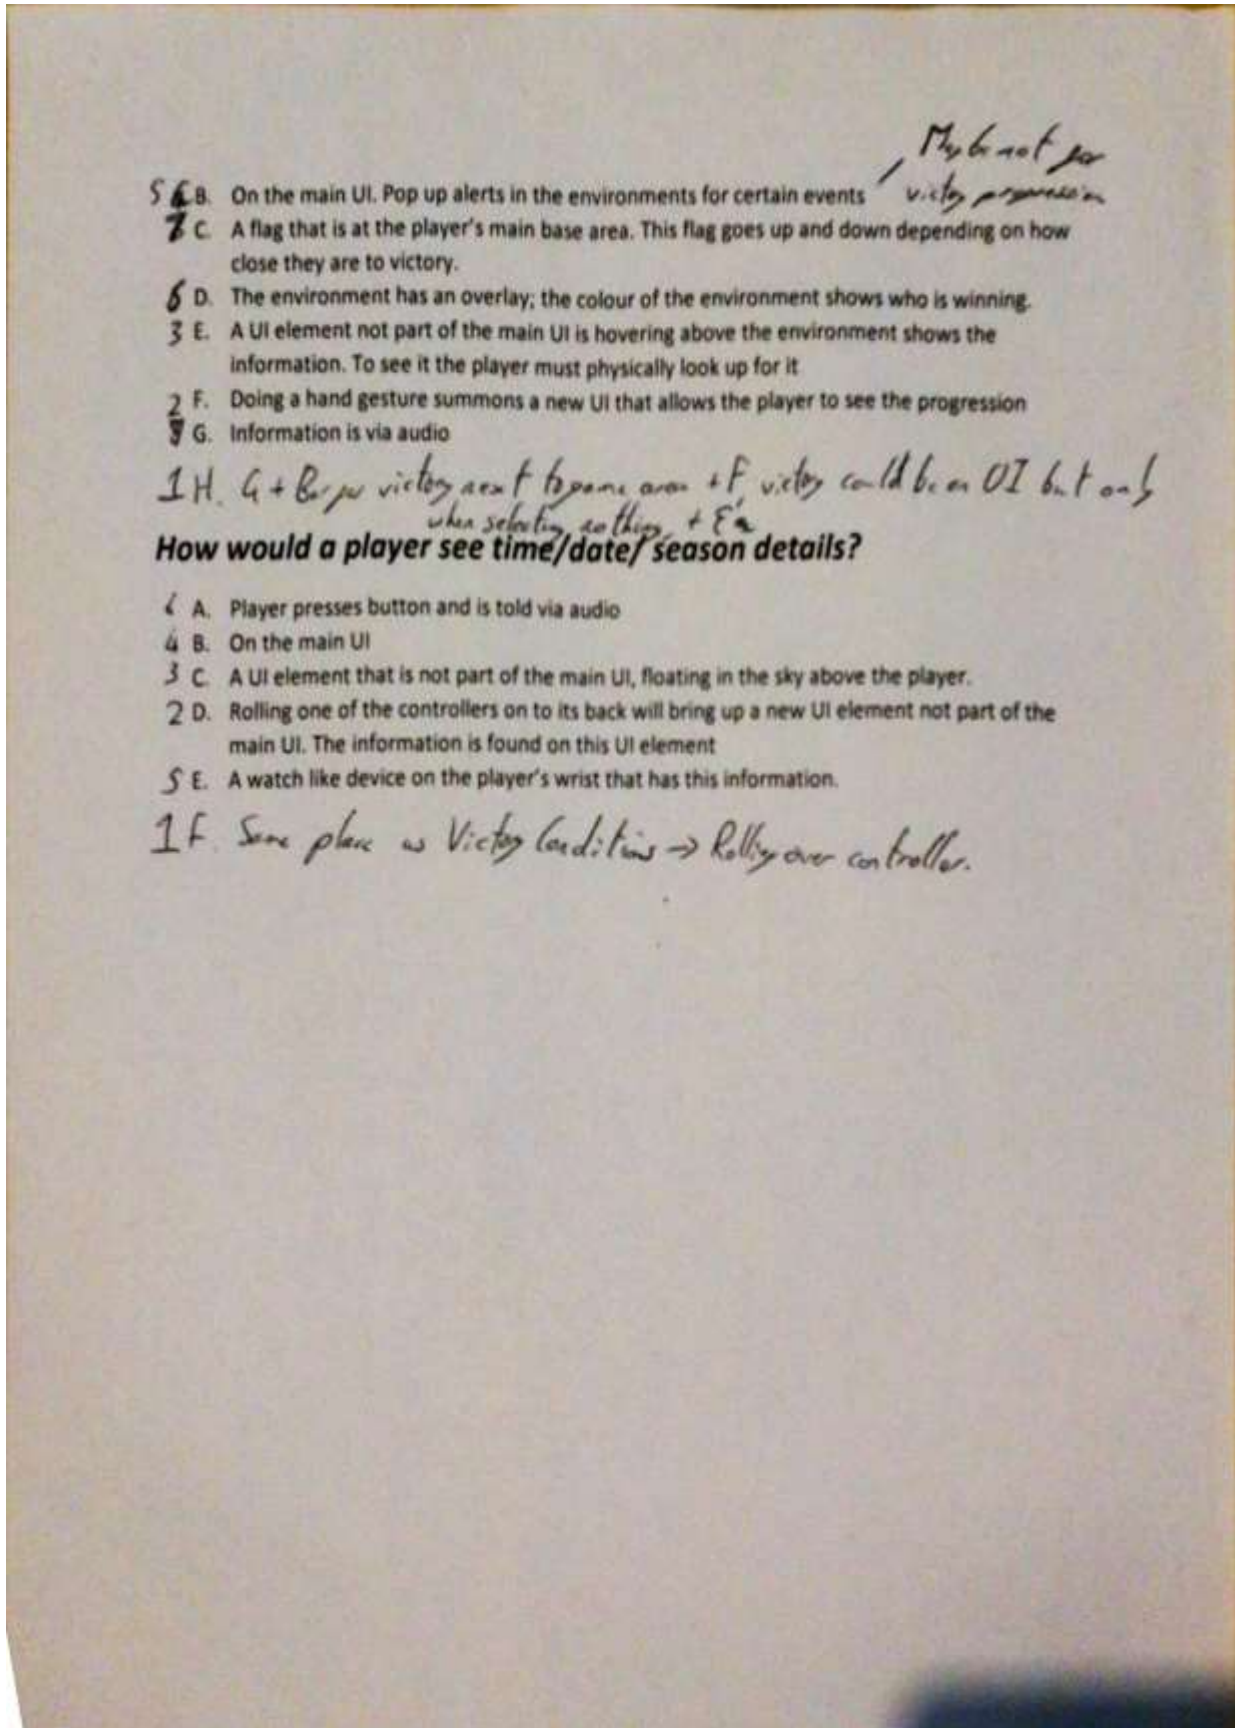 Maybe not for
5 6 B. On the main UI. Pop up alerts in the environments for certain events victory progression
7 C. A flag that is at the player's main base area. This flag goes up and down depending on how
close they are to victory.
6 D. The environment has an overlay; the colour of the environment shows who is winning.
3 E. A UI element not part of the main UI is hovering above the environment shows the
information. To see it the player must physically look up for it
2 F. Doing a hand gesture summons a new UI that allows the player to see the progression
G. Information is via audio
1 H. G + Bar for victory next to game area + F, victory could be on UI but only
when selecting nothing +
How would a player see time/date/ season details?
6 A. Player presses button and is told via audio
4 B. On the main UI
3 C. A UI element that is not part of the main UI, floating in the sky above the player.
2 D. Rolling one of the controllers on to its back will bring up a new UI element not part of the
main UI. The information is found on this UI element
5 E. A watch like device on the player's wrist that has this information.
1 F. Same place as Victory Conditions → Rolling over controller.